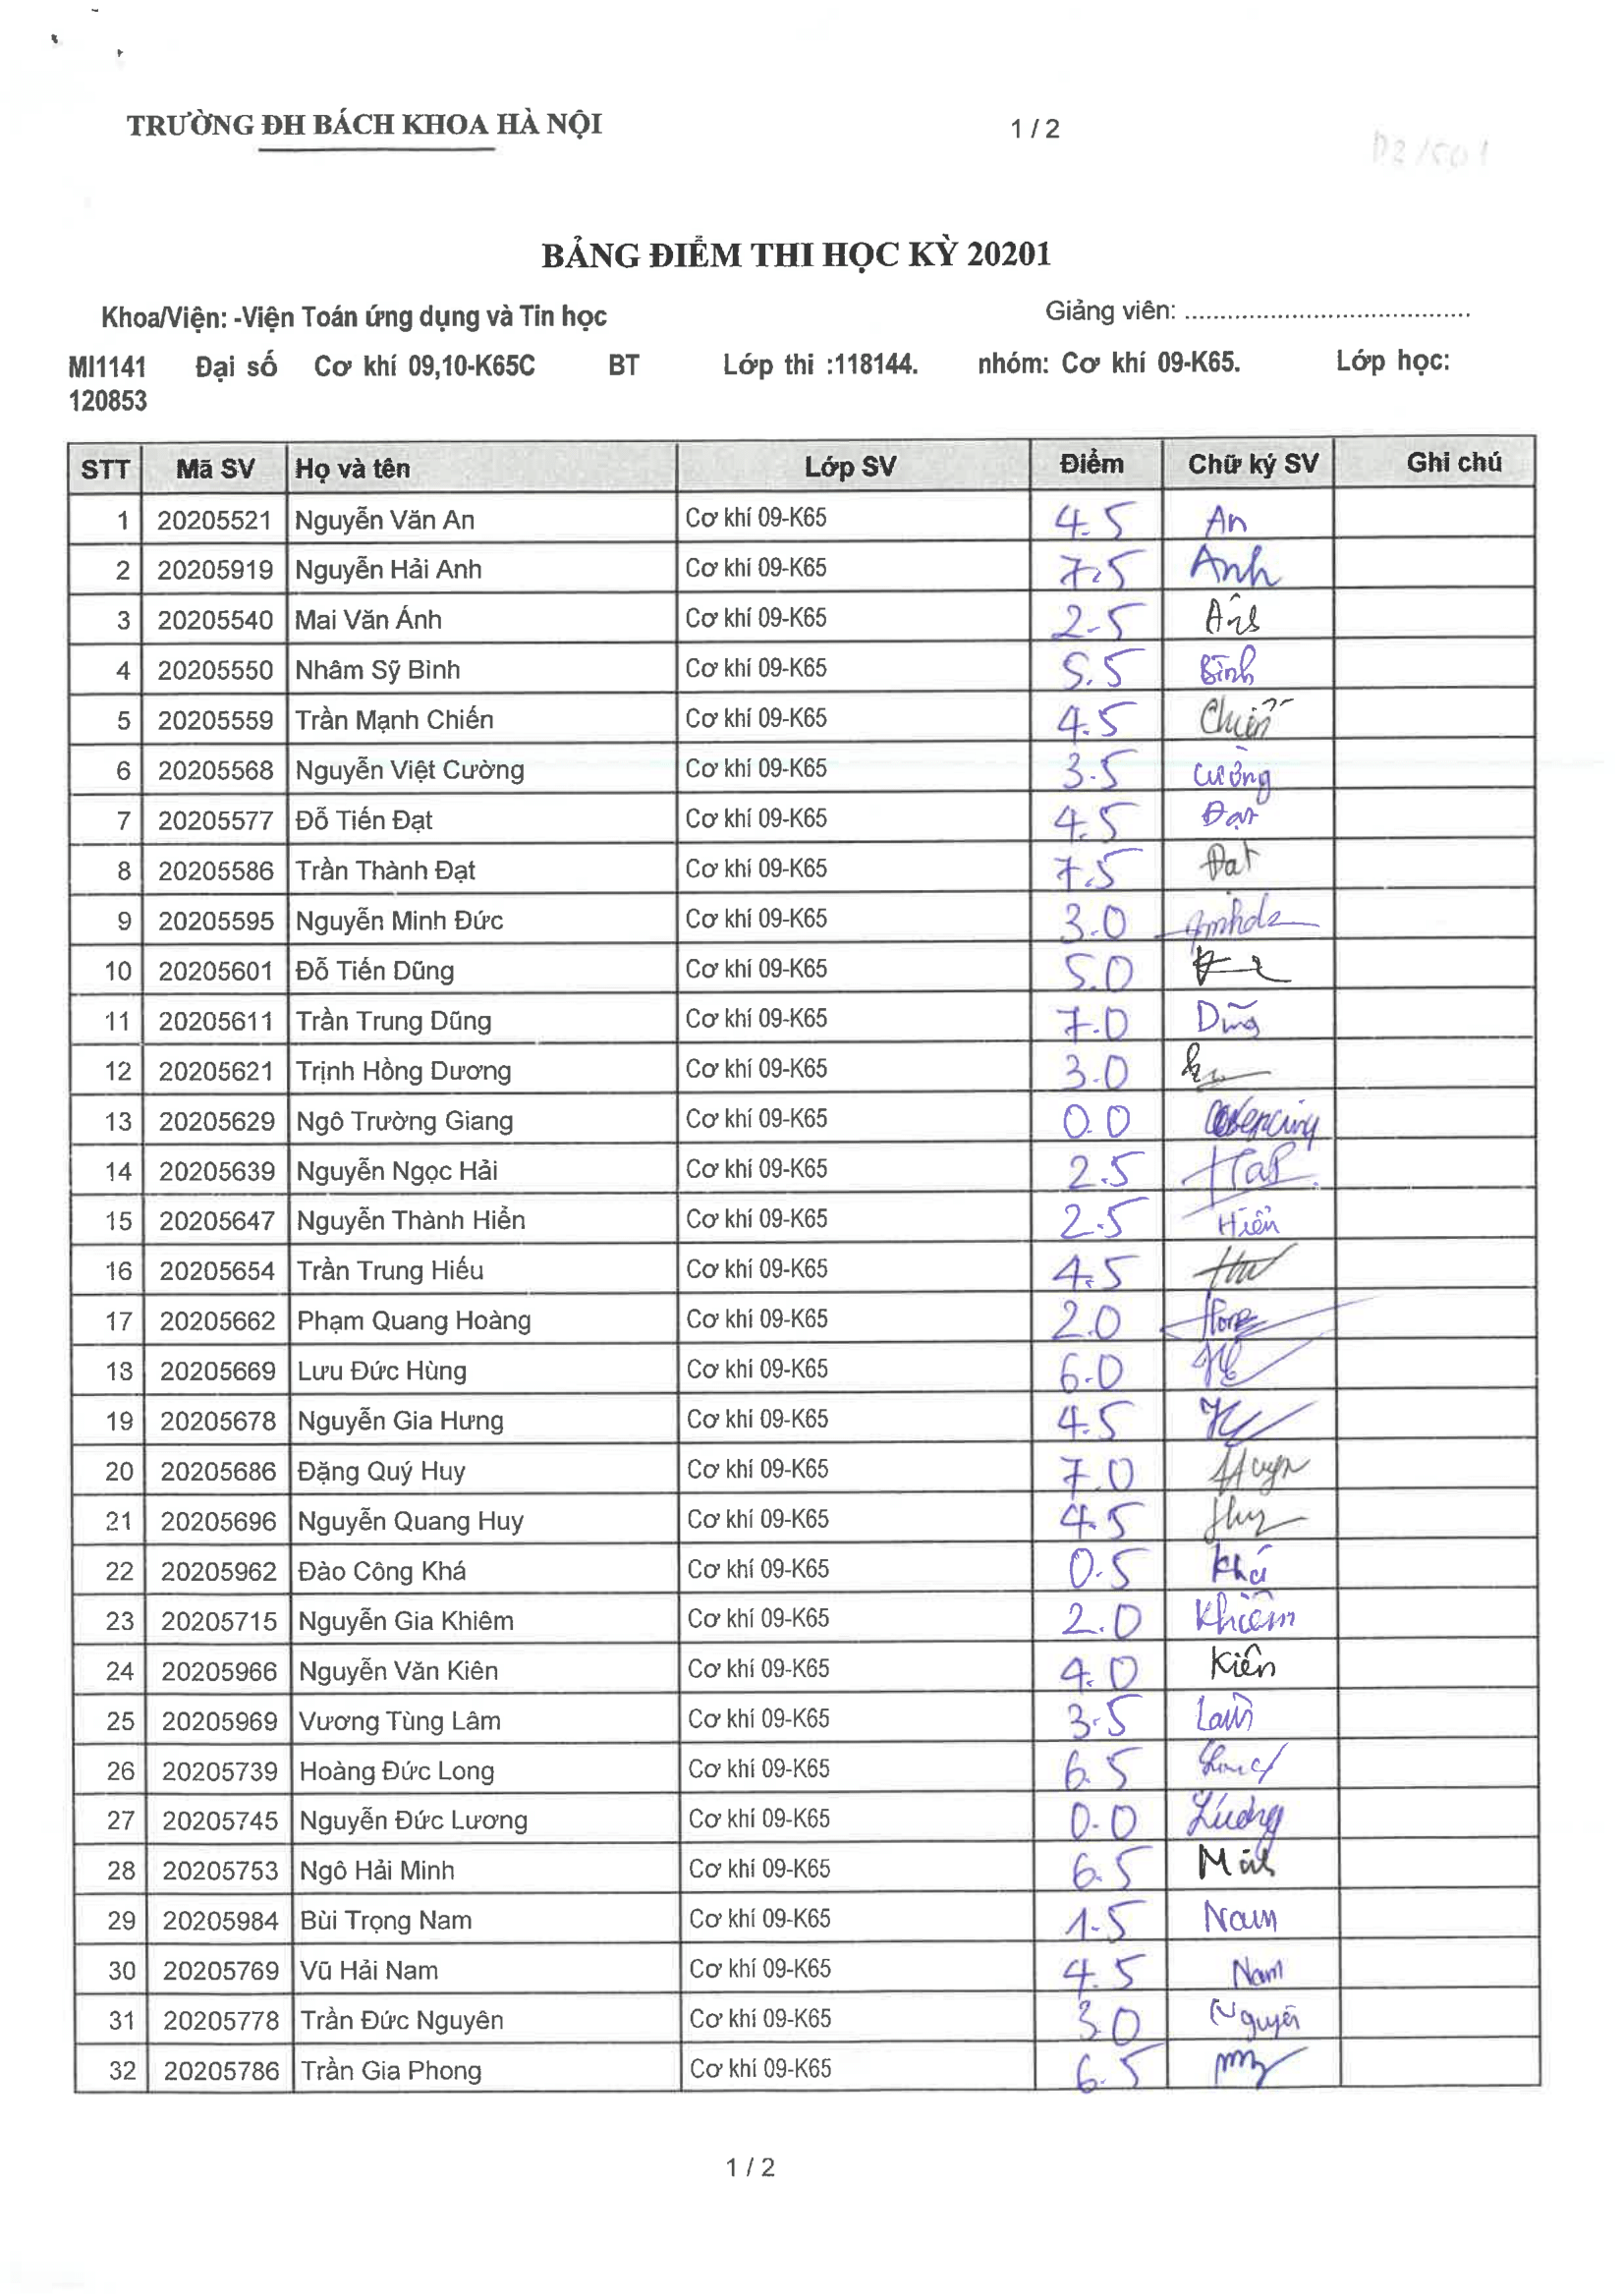 TRƯỜNG ĐH BÁCH KHOA HÀ NỘI 1 / 2
BẢNG ĐIỂM THI HỌC KỲ 20201
Khoa/Viện: -Viện Toán ứng dụng và Tin học Giảng viên: ........................................
MI1141 Đại số Cơ khí 09,10-K65C BT Lớp thi :118144. nhóm: Cơ khí 09-K65. Lớp học:
120853
STT Mã SV Họ và tên Lớp SV Điểm Chữ ký SV Ghi chú
1 20205521 Nguyễn Văn An Cơ khí 09-K65 4.5 An
2 20205919 Nguyễn Hải Anh Cơ khí 09-K65 7.5 Anh
3 20205540 Mai Văn Ánh Cơ khí 09-K65 2.5
4 20205550 Nhâm Sỹ Bình Cơ khí 09-K65 5.5 Bình
5 20205559 Trần Mạnh Chiến Cơ khí 09-K65 4.5 Chiến
6 20205568 Nguyễn Việt Cường Cơ khí 09-K65 3.5 Cường
7 20205577 Đỗ Tiến Đạt Cơ khí 09-K65 4.5 Đạt
8 20205586 Trần Thành Đạt Cơ khí 09-K65 7.5 Đạt
9 20205595 Nguyễn Minh Đức Cơ khí 09-K65 3.0
10 20205601 Đỗ Tiến Dũng Cơ khí 09-K65 5.0
11 20205611 Trần Trung Dũng Cơ khí 09-K65 7.0 Dũng
12 20205621 Trịnh Hồng Dương Cơ khí 09-K65 3.0
13 20205629 Ngô Trường Giang Cơ khí 09-K65 0.0
14 20205639 Nguyễn Ngọc Hải Cơ khí 09-K65 2.5
15 20205647 Nguyễn Thành Hiển Cơ khí 09-K65 2.5 Hiển
16 20205654 Trần Trung Hiếu Cơ khí 09-K65 4.5
17 20205662 Phạm Quang Hoàng Cơ khí 09-K65 2.0
18 20205669 Lưu Đức Hùng Cơ khí 09-K65 6.0
19 20205678 Nguyễn Gia Hưng Cơ khí 09-K65 4.5
20 20205686 Đặng Quý Huy Cơ khí 09-K65 7.0
21 20205696 Nguyễn Quang Huy Cơ khí 09-K65 4.5 Huy
22 20205962 Đào Công Khá Cơ khí 09-K65 0.5 Khá
23 20205715 Nguyễn Gia Khiêm Cơ khí 09-K65 2.0 Khiêm
24 20205966 Nguyễn Văn Kiên Cơ khí 09-K65 4.0 Kiên
25 20205969 Vương Tùng Lâm Cơ khí 09-K65 3.5 Lâm
26 20205739 Hoàng Đức Long Cơ khí 09-K65 6.5
27 20205745 Nguyễn Đức Lương Cơ khí 09-K65 0.0 Lương
28 20205753 Ngô Hải Minh Cơ khí 09-K65 6.5
29 20205984 Bùi Trọng Nam Cơ khí 09-K65 1.5 Nam
30 20205769 Vũ Hải Nam Cơ khí 09-K65 4.5 Nam
31 20205778 Trần Đức Nguyên Cơ khí 09-K65 3.0 Nguyên
32 20205786 Trần Gia Phong Cơ khí 09-K65 6.5
1 / 2